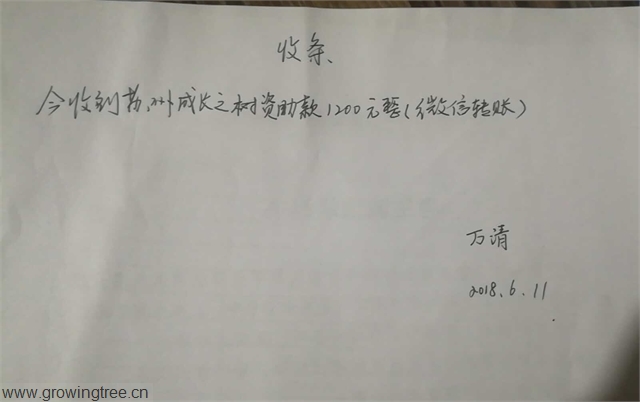 收条
今收到苏州成长之树资助款1200元整(微信转账)
万清
2018.6.11
www.growingtree.cn